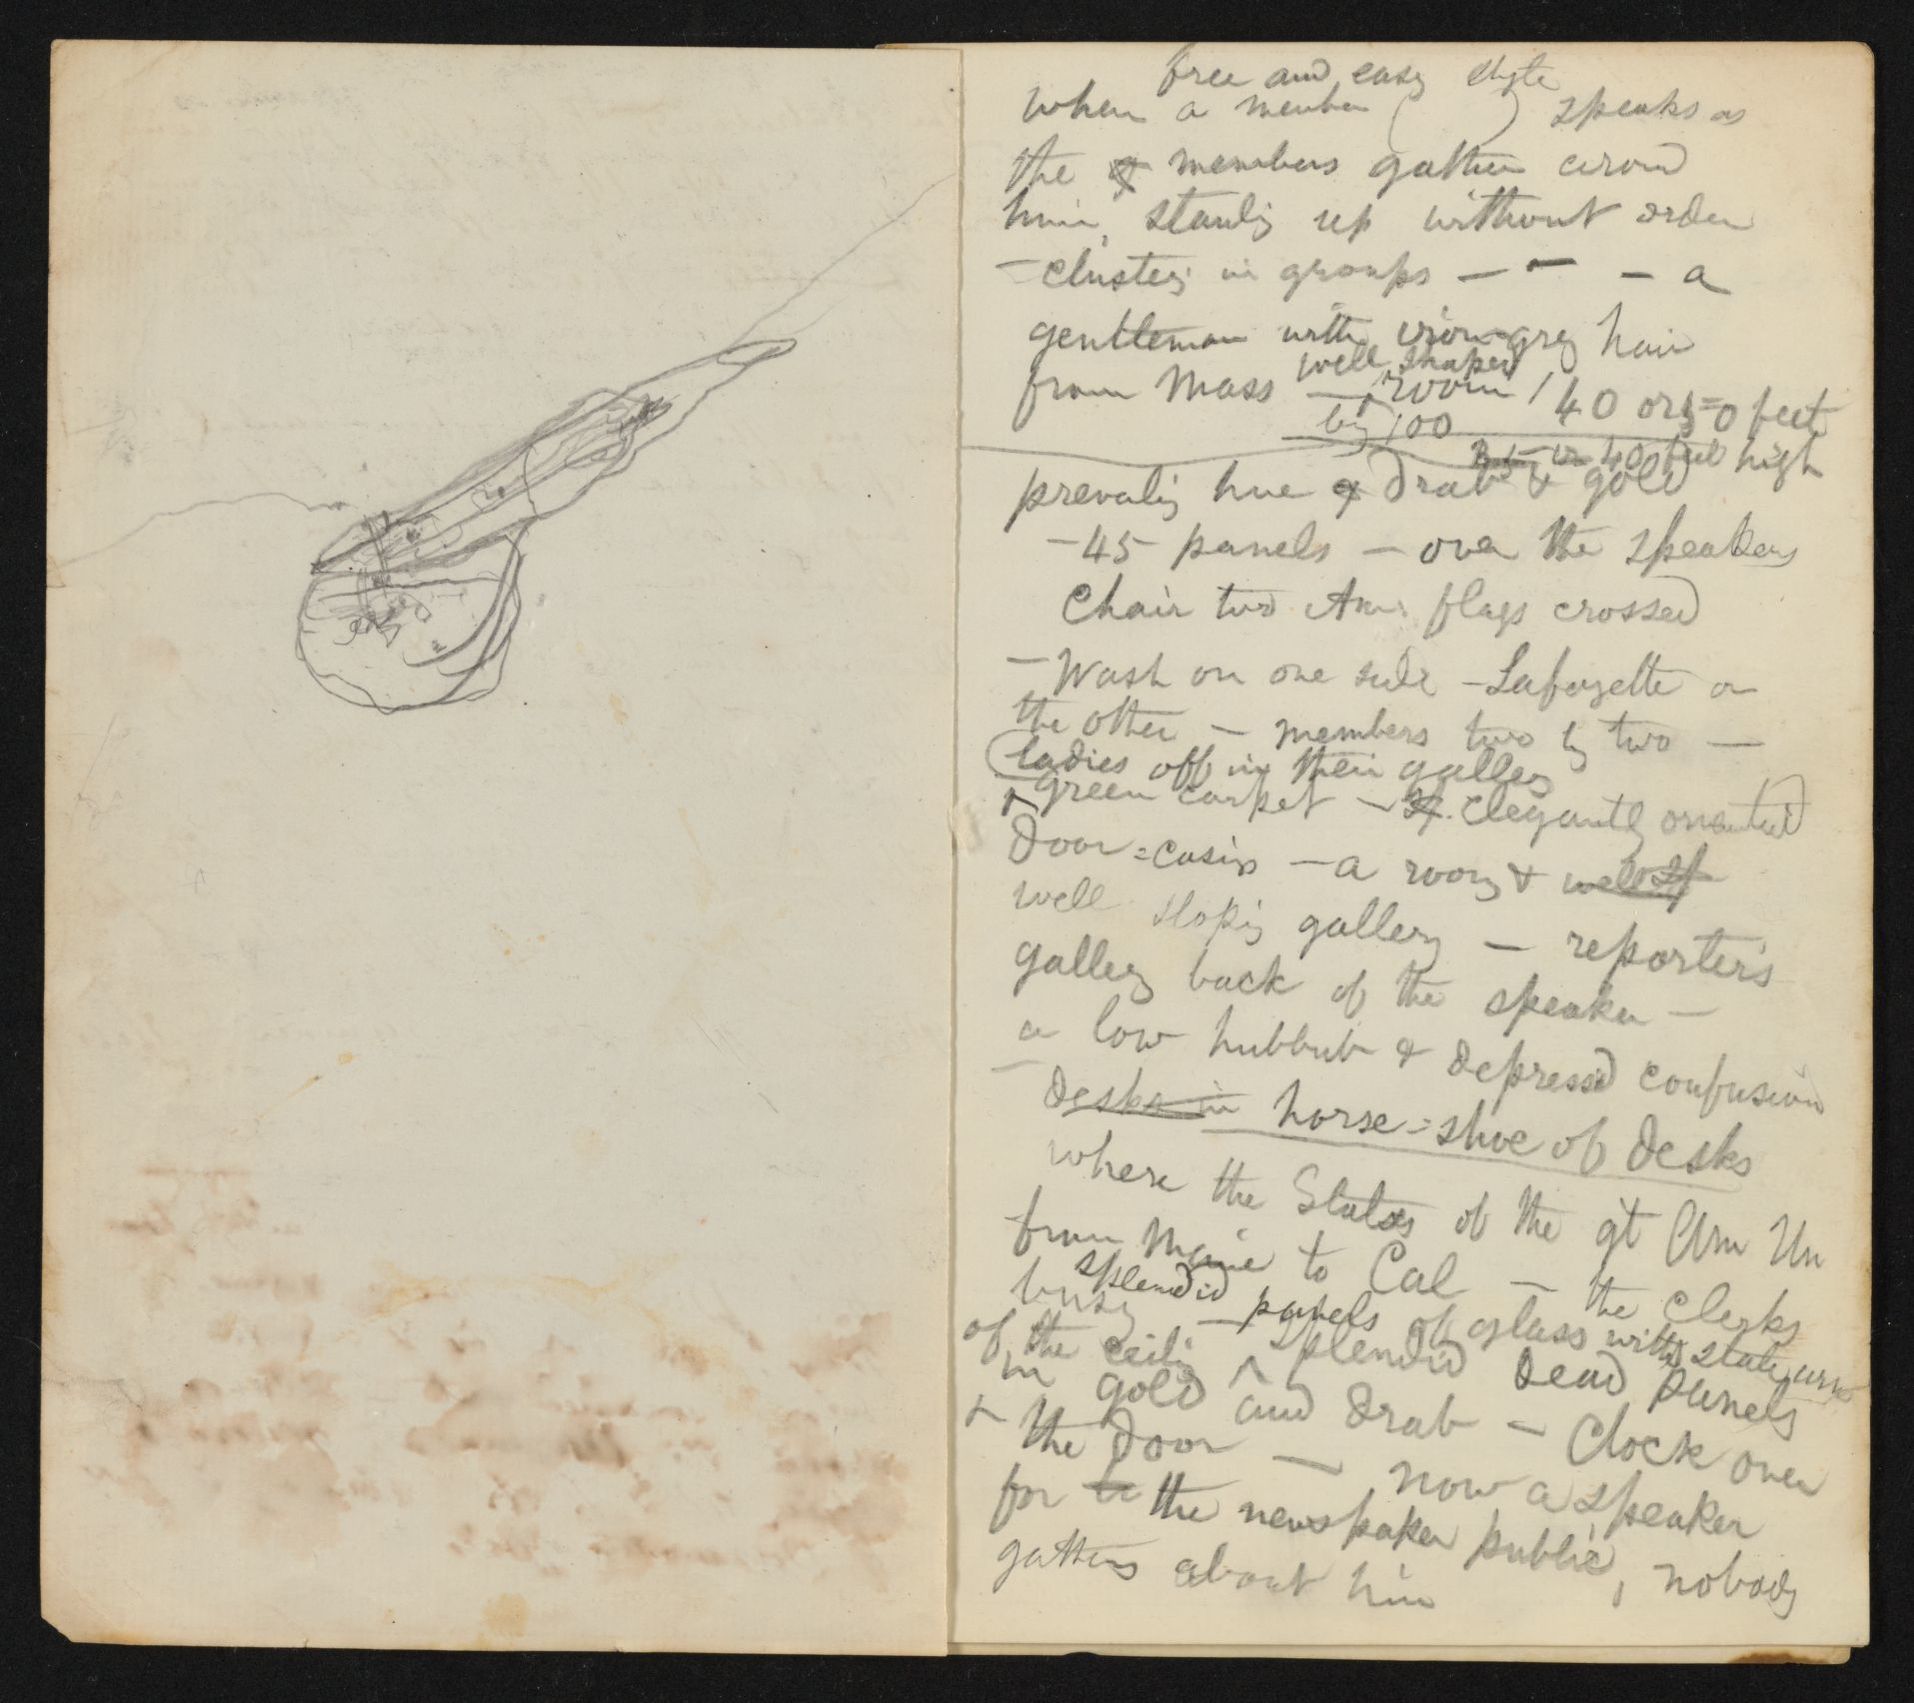 free and easy style
When a member ( ) speaks as
the & members gather aroud
him, standig up without order
- clusterig in groups — — — a
gentleman with iron-grey hair
from Mass — well shaped
room, 40 or 50 feet
by 100
35 or 40 feet high
prevalig hue & drab & gold
- 45 panels — over the speakers
Chair two Amr flags crossed
- Wash on one side - Lafayette on
the other — members two by two —
(ladies off in their gallery
green carpet — elegantly ornamted
door=casigs — a roomy & well sl
well slopig gallery — reporter's
gallery back of the speaker —
a low hubbub & depressed confusion
— desks in horse=shoe of desks
where the States of the gt Am Un
from Maine to Cal — the clerks
busy — splendid panels of glass with state arms
of the ceilig ^ splendid dead panels
in gold and drab — Clock over
& the door — now a speaker
for the newspaper public, nobody
gathers about him